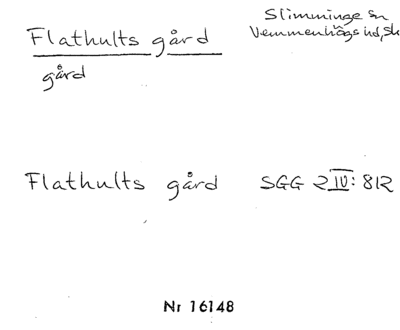 Flathults gård
Slimminge sn
Vemmenhögs hd, Sk
gård
Flathults gård SGG 2 IV: 812
Nr 16148